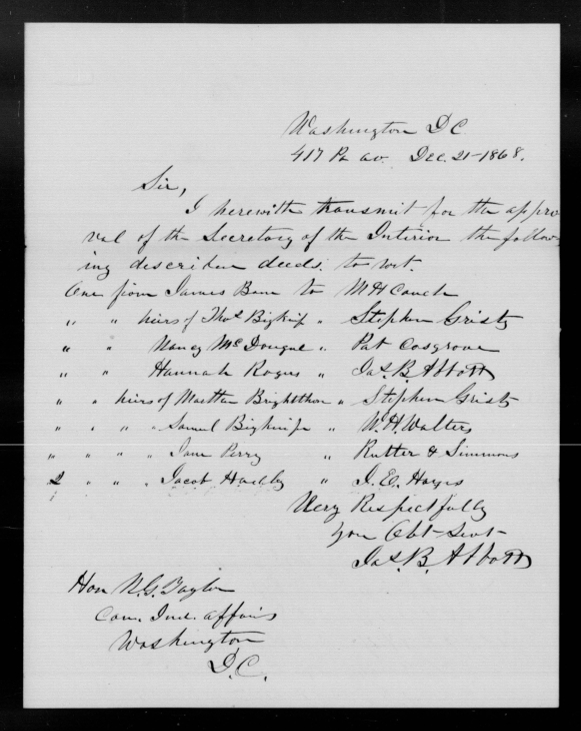 Washington DC
417 Pa av. Dec. 21-1868.
Sir,
I herewith transmit for the appro
val of the Secretary of the Interior the follow
ing described deeds. to wit.
One from James Bone to M H Couch
" " heirs of Thos Bigknife " Stephen Gristy
" " Nancy McDougal " Pat Cosgrove
" " Hannah Rogers " Jas. B. Abbott
" " heirs of Martha Brightthorn " Stephen Gristy
" " " " Samuel Bigknife " W. H. Walters
" " " " Jane Perry " Rutter & Simmons
2 " " " Jacob " J. E. Hayes
Very Respectfully
your Obt Servt
Jas. B. Abbott
Hon N. G. Taylor
Com. Ind. affairs
Washington
D.C.